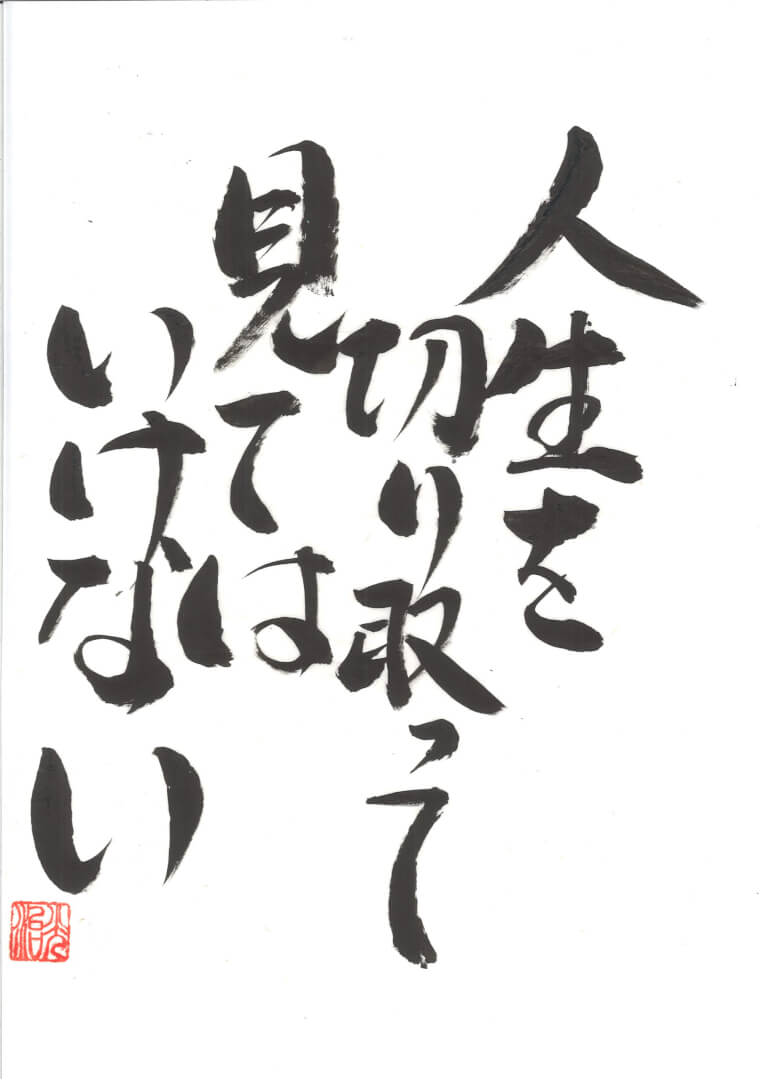 人生を
切り取って
見ては
いけない